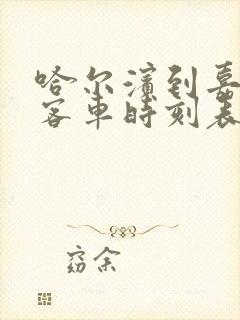 哈尔滨到嘉
客车时刻表
窈余